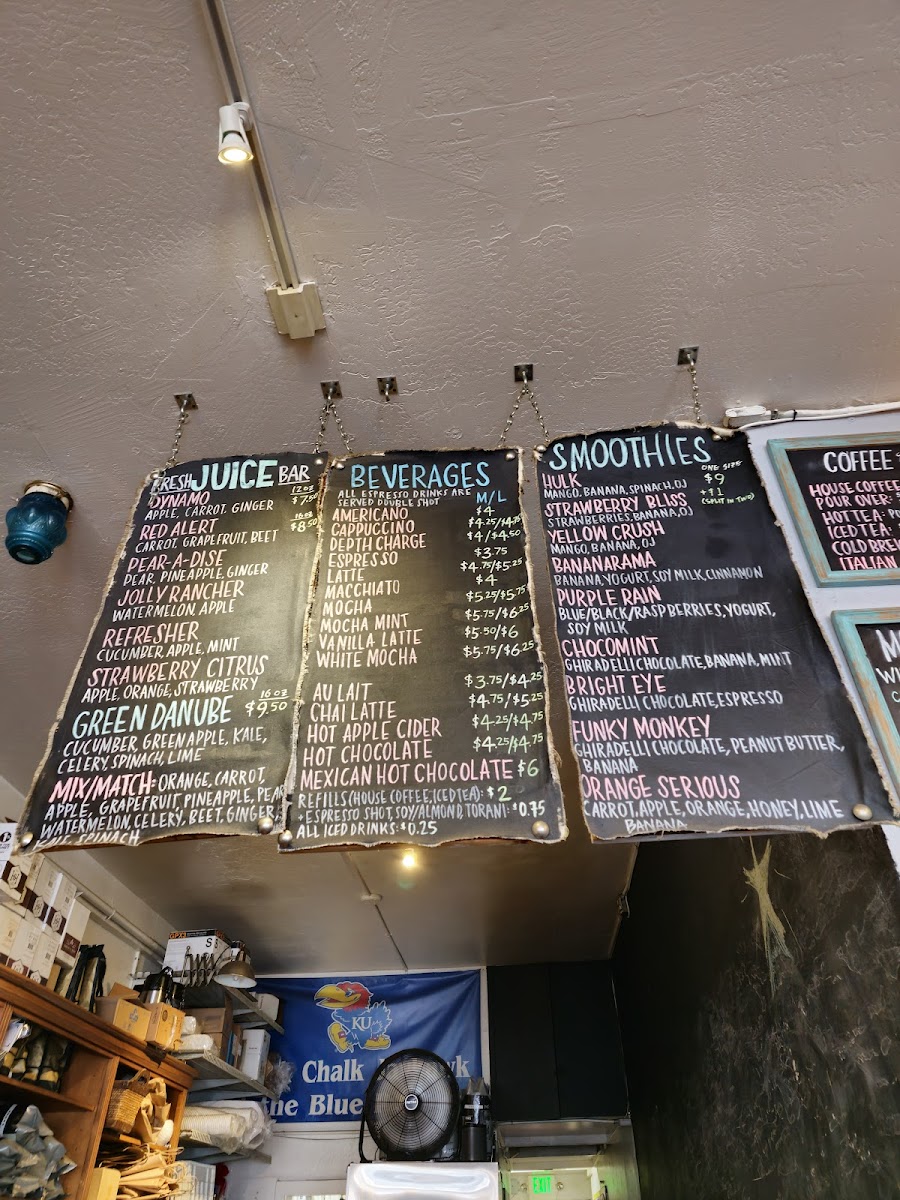 FRESH JUICE BAR
12 OZ
$7.50
DYNAMO
APPLE, CARROT, GINGER
16 OZ
$8.50
RED ALERT
CARROT, GRAPEFRUIT, BEET
PEAR-A-DISE
PEAR, PINEAPPLE, GINGER
JOLLY RANCHER
WATERMELON, APPLE
REFRESHER
CUCUMBER, APPLE, MINT
STRAWBERRY CITRUS
APPLE, ORANGE, STRAWBERRY
16 OZ
GREEN DANUBE $9.50
CUCUMBER, GREEN APPLE, KALE,
CELERY, SPINACH, LIME
MIX/MATCH: ORANGE, CARROT,
APPLE, GRAPEFRUIT, PINEAPPLE, PEAR
WATERMELON, CELERY, BEET, GINGER,
KALE, SPINACH
BEVERAGES
ALL ESPRESSO DRINKS ARE
SERVED DOUBLE SHOT M/L
AMERICANO $4
CAPPUCCINO $4.25/$4.75
DEPTH CHARGE $4/$4.50
ESPRESSO $3.75
LATTE $4.75/$5.25
MACCHIATO $4
MOCHA $5.25/$5.75
MOCHA MINT $5.75/$6.25
VANILLA LATTE $5.50/$6
WHITE MOCHA $5.75/$6.25
AU LAIT $3.75/$4.25
CHAI LATTE $4.75/$5.25
HOT APPLE CIDER $4.25/$4.75
HOT CHOCOLATE $4.25/$4.75
MEXICAN HOT CHOCOLATE $6
REFILLS (HOUSE COFFEE, ICED TEA): $2
+ESPRESSO SHOT, SOY/ALMOND, TORANI: $0.75
ALL ICED DRINKS: $0.25
SMOOTHIES
ONE SIZE
$9
+$1
(SPLIT IN TWO)
HULK
MANGO, BANANA, SPINACH, OJ
STRAWBERRY BLISS
STRAWBERRIES, BANANA, OJ
YELLOW CRUSH
MANGO, BANANA, OJ
BANANARAMA
BANANA, YOGURT, SOY MILK, CINNAMON
PURPLE RAIN
BLUE/BLACK/RASPBERRIES, YOGURT,
SOY MILK
CHOCOMINT
GHIRADELLI CHOCOLATE, BANANA, MINT
BRIGHT EYE
GHIRADELLI CHOCOLATE, ESPRESSO
FUNKY MONKEY
GHIRADELLI CHOCOLATE, PEANUT BUTTER,
BANANA
ORANGE SERIOUS
CARROT, APPLE, ORANGE, HONEY, LIME
BANANA
COFFEE
HOUSE COFFEE
POUR OVER:
HOT TEA:
ICED TEA:
COLD BREW
ITALIAN
KU
Chalk
the Blue
EXIT